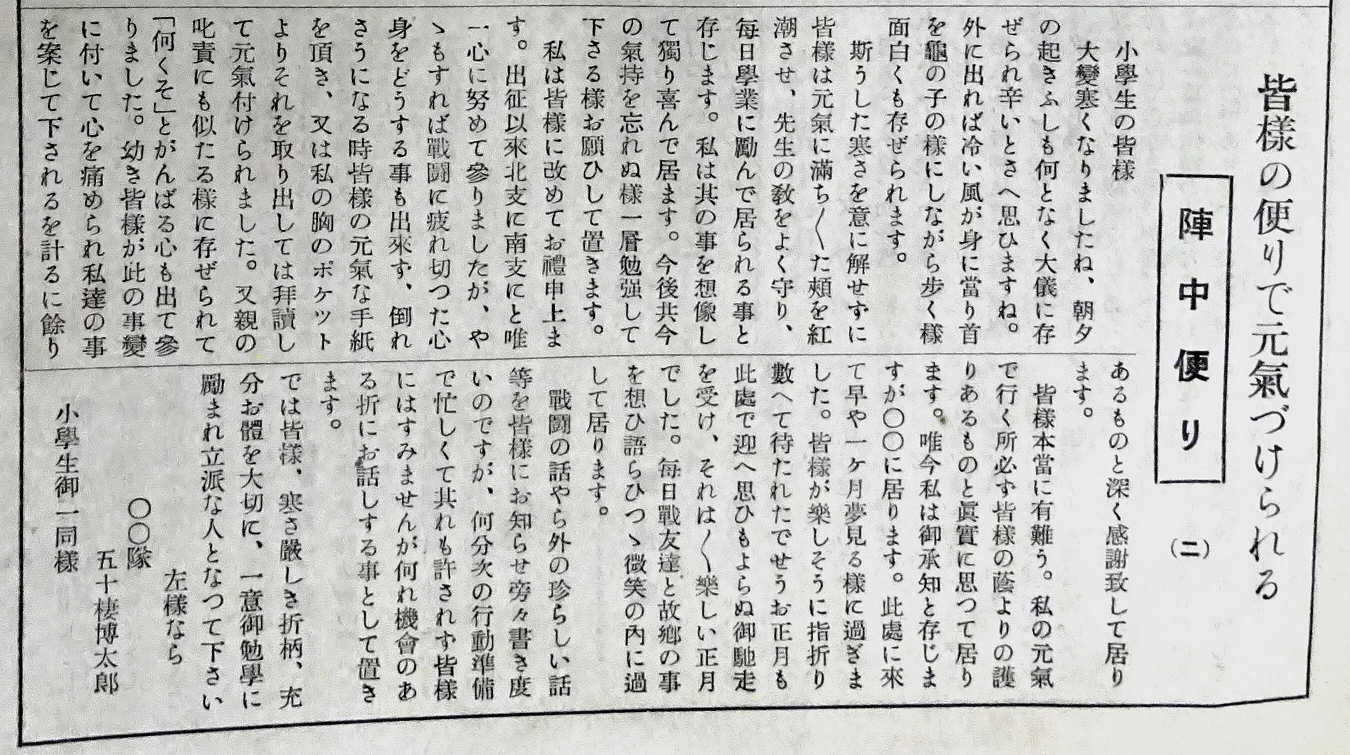 皆樣の便りで元氣づけられる
陣中便り
(二)
小學生の皆樣
大變寒くなりましたね、朝夕
の起きふしも何となく大儀に存
ぜられ辛いとさへ思ひますね。
外に出れば冷い風が身に當り首
を龜の子の樣にしながら步く樣
面白くも存ぜられます。
斯うした寒さを意に解せずに
皆樣は元氣に滿ち〱た頰を紅
潮させ、先生の敎をよく守り、
每日學業に勵んで居られる事と
存じます。私は其の事を想像し
て獨り喜んで居ます。今後共今
の氣持を忘れぬ樣一層勉强して
下さる樣お願ひして置きます。
私は皆樣に改めてお禮申上ま
す。出征以來北支に南支にと唯
一心に努めて參りましたが、や
ゝもすれば戰鬪に疲れ切つた心
身をどうする事も出來ず、倒れ
さうになる時皆樣の元氣な手紙
を頂き、又は私の胸のポケツト
よりそれを取り出しては拜讀し
て元氣付けられました。又親の
叱責にも似たる樣に存ぜられて
「何くそ」とがんばる心も出て參
りました。幼き皆樣が此の事變
に付いて心を痛められ私達の事
を案じて下されるを計るに餘り
あるものと深く感謝致して居り
ます。
皆樣本當に有難う。私の元氣
で行く所必ず皆樣の蔭よりの護
りあるものと眞實に思つて居り
ます。唯今私は御承知と存じま
すが〇〇に居ります。此處に來
て早や一ケ月夢見る樣に過ぎま
した。皆樣が樂しそうに指折り
數へて待たれたでせうお正月も
此處で迎へ思ひもよらぬ御馳走
を受け、それは〱樂しい正月
でした。每日戰友達と故鄕の事
を想ひ語らひつゝ微笑の內に過
して居ります。
戰鬪の話やら外の珍らしい話
等を皆樣にお知らせ旁々書き度
いのですが、何分次の行動準備
で忙しくて其れも許されず皆樣
にはすみませんが何れ機會のあ
る折にお話しする事として置き
ます。
では皆樣、寒さ嚴しき折柄、充
分お體を大切に、一意御勉學に
勵まれ立派な人となつて下さい
左樣なら
〇〇隊
五十棲博太郞
小學生御一同樣